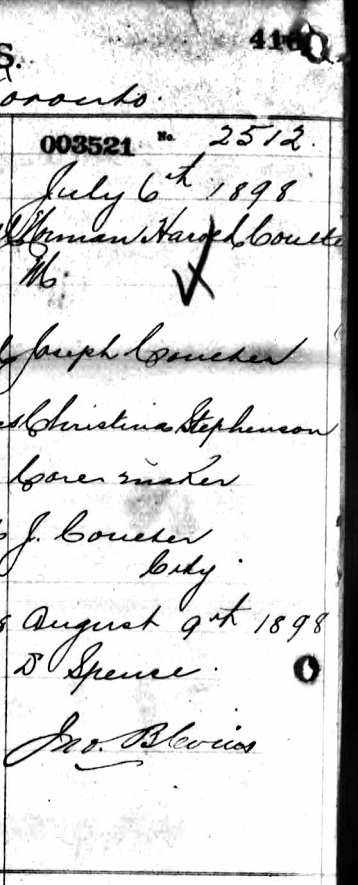 S.
oronto.
003521 No. 2512.
July 6th 1898
Norman Harold
M.
Joseph Coucher
Christina Stephenson
Core maker
J. Coucher
City.
August 9th 1898
Spense.
Jno. Blevins